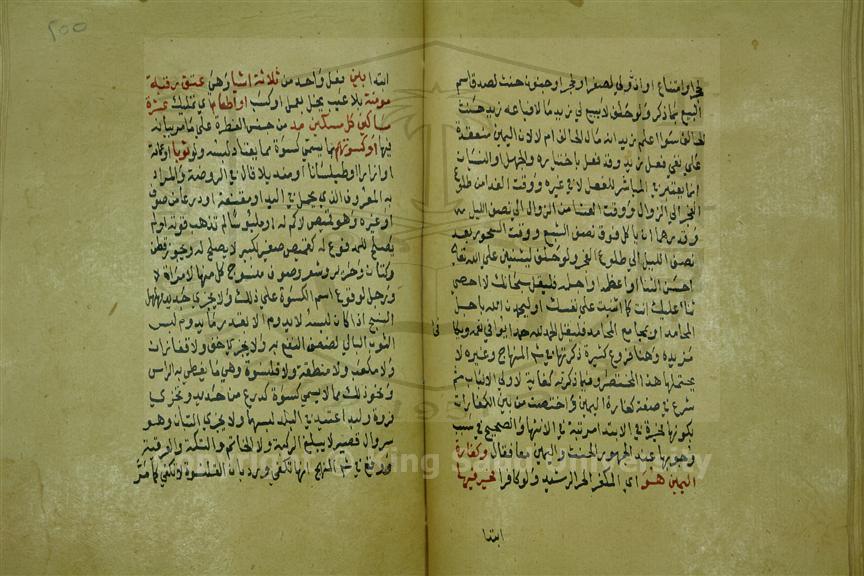 فجرا وامتناع او اذن ولي لصغر او فجر او جنون حنث لصدق اسم
البيع بما ذكر ولو حلف لا يبيع لي زيد مالا فباعه زيد حنث
الحالف سوا علم زيد انه مال الحالف ام لا لان اليمين منعقدة
علي نفي فعل زيد وقد فعل باختياره والجهل والنسيان
انما يعتبر في المباشر للفعل لا في غيره ووقت الغدا من طلوع
الفجر الي الزوال ووقت العشا من الزوال الي نصف الليل
وقدرهما ان ياكل فوق نصف الشبع ووقت السحور بعد
نصف الليل الي طلوع الفجر ولو حلف ليثنين علي الله تعالى
احسن الثنا او اعظمه او اجله فليقل سبحانك لا احصي
ثنا عليك انت كما اثنيت علي نفسك او ليحمدن الله باجل
المحامد او بمجامع المحامد فليقل الحمد لله حمدا يوافي نعمه ويكافي
مزيده وهنا فروع كثيرة ذكرتها في شرح المنهاج وغيره لا
يحتملها هذا المختصر وفيما ذكرته كفاية لاولي الالباب ثم
شرع في صفة كفارة اليمين واختصت من بين الكفارات
بكونها مخيرة في الابتدا مرتبة في الانتها والصحيح في سبب
وجوبها عند الجمهور الحنث واليمين معا فقال وكفارة
اليمين هو اي المكفر الحر الرشيد ولو كافرا مخير فيها
ابتدا
٢٥٥
ابتدا بين فعل واحد من ثلاثة اشيا وهي عتق رقبة
مومنة بلا عيب يخل بعمل او كسب او اطعام اي تمليك عشرة
مساكين كل مسكين مد من جنس الفطرة علي ما مر بيانه
فيها او كسوتهم بما يسمي كسوة مما يعتاد لبسه ولو ثوبا او عمامة
او ازارا او طيلسانا او منديلا قال في الروضة والمراد
به المعروف الذي يحمل في اليد او مقنعة او درعا من صوف
او غيره وهو قميص لا كم له او ملبوسا لم تذهب قوته او لم
يصلح للمدفوع له كقميص صغير لكبير لا يصلح له ويجوز قطن
وكتان وحرير وشعر وصوف منسوج كل منها لامراة
ورجل لوقوع اسم الكسوة علي ذلك ولا يجزي جديد مهلهل
النسج اذا كان لبسه لا يدوم الا بقدر ما يدوم لبس
الثوب البالي لضعف النفع به ولا يجزي خف ولا قفازات
ولا مكعب ولا منطقة ولا قلنسوة وهي ما يغطي به الراس
ونحو ذلك مما لا يسمي كسوة كدرع من حديد ويجزي
فروة ولبد اعتيد في البلد لبسها ولا يجزي التبان وهو
سروال قصير لا يبلغ الركبة ولا الخاتم والتكة والعرقية
ووقع في شرح المنهج انها تكفي ورد بان القلنسوة لا تكفي كما مر